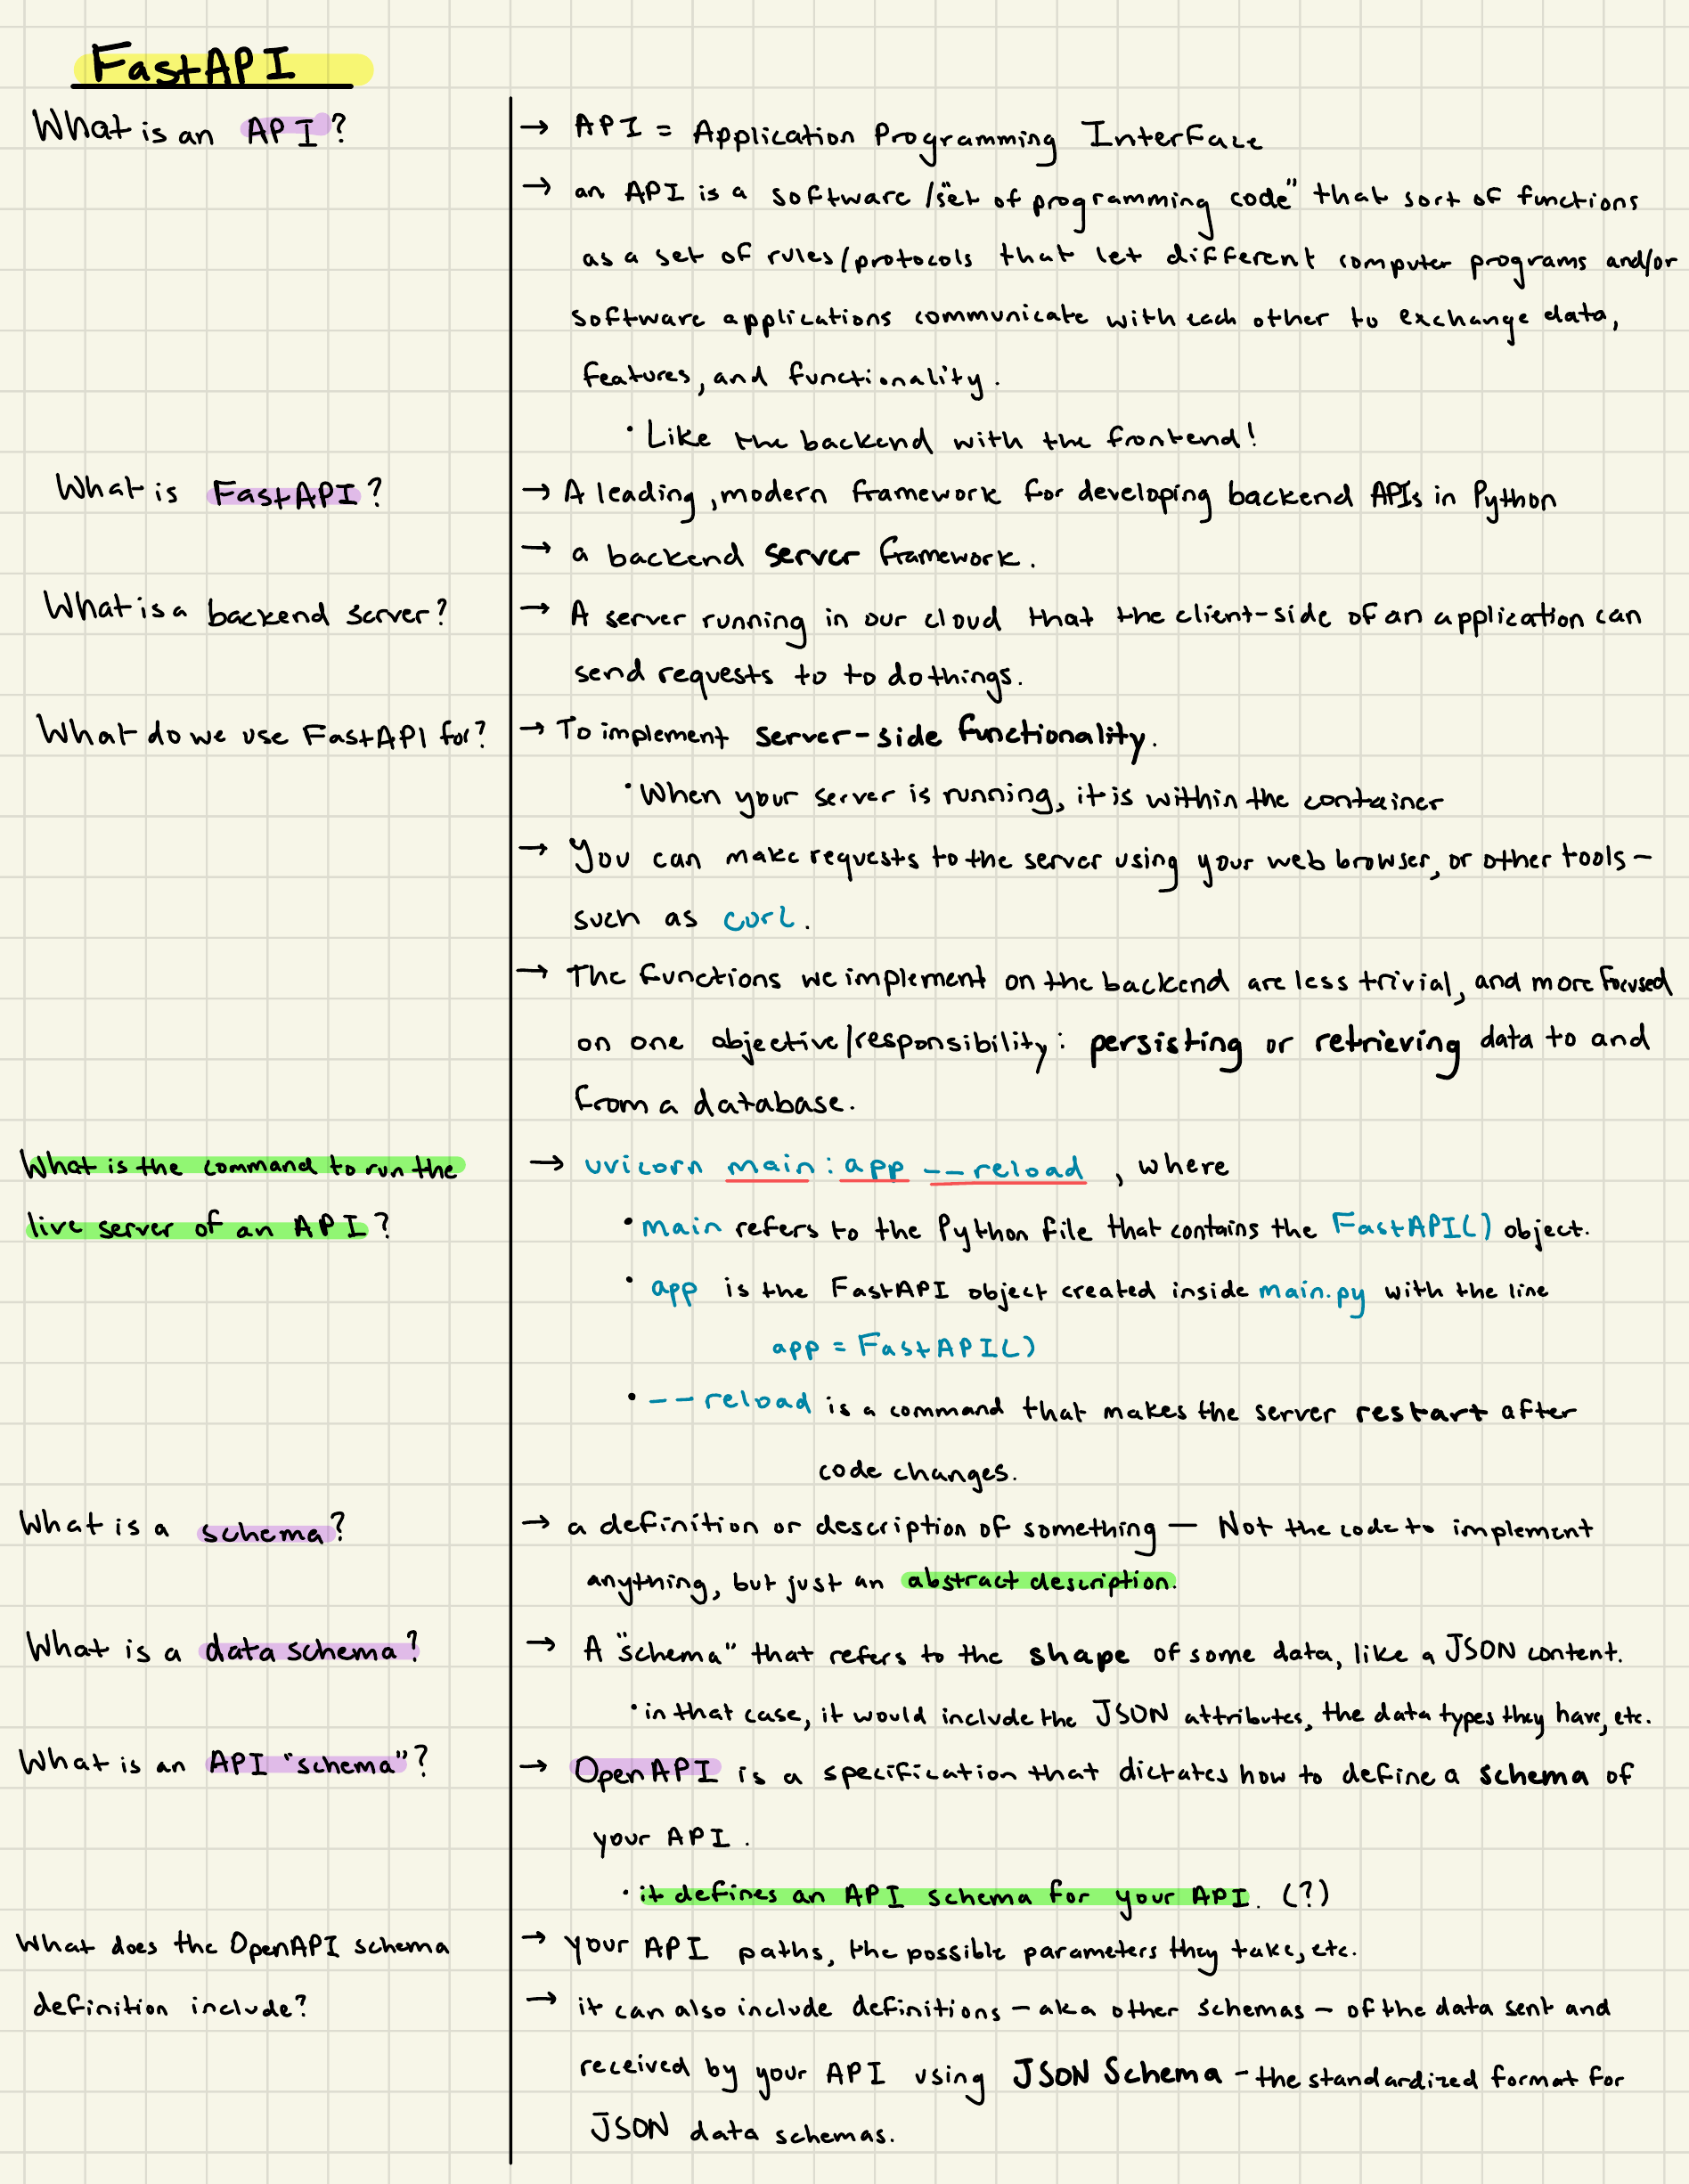 FastAPI
What is an API?
→ API = Application Programming Interface
→ an API is a software /"set of programming code" that sort of functions
as a set of rules/protocols that let different computer programs and/or
software applications communicate with each other to exchange data,
features, and functionality.
• Like the backend with the frontend!
What is FastAPI?
→ A leading, modern framework for developing backend APIs in Python
→ a backend server framework.
What is a backend server?
→ A server running in our cloud that the client-side of an application can
send requests to to do things.
What do we use FastAPI for?
→ To implement server-side functionality.
• When your server is running, it is within the container
→ You can make requests to the server using your web browser, or other tools –
such as curl.
→ The functions we implement on the backend are less trivial, and more focused
on one objective/responsibility: persisting or retrieving data to and
from a database.
What is the command to run the
live server of an API?
→ uvicorn main:app --reload , where
• main refers to the Python file that contains the FastAPI() object.
• app is the FastAPI object created inside main.py with the line
app = FastAPI()
• --reload is a command that makes the server restart after
code changes.
What is a schema?
→ a definition or description of something — Not the code to implement
anything, but just an abstract description.
What is a data schema?
→ A "schema" that refers to the shape of some data, like a JSON content.
• in that case, it would include the JSON attributes, the data types they have, etc.
What is an API "schema"?
→ OpenAPI is a specification that dictates how to define a schema of
your API.
• it defines an API schema for your API. (?)
What does the OpenAPI schema
definition include?
→ your API paths, the possible parameters they take, etc.
→ it can also include definitions – aka other schemas – of the data sent and
received by your API using JSON Schema – the standardized format for
JSON data schemas.